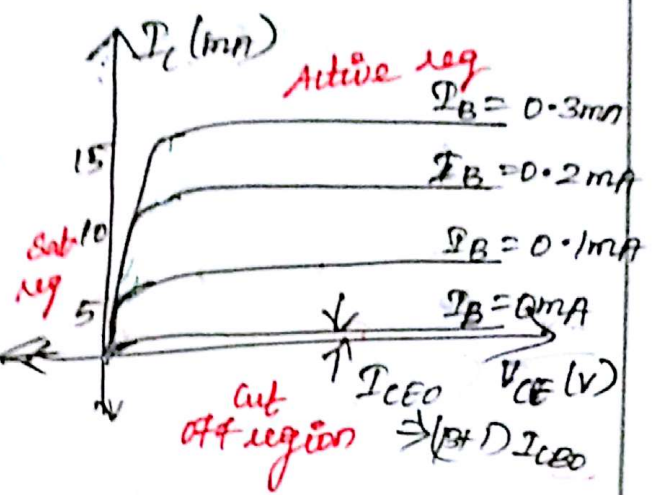 I_C (mA)
Active reg
I_B = 0.3mA
15
I_B = 0.2mA
10
Sat
reg
I_B = 0.1mA
5
I_B = 0mA
I_CEO
V_CE (V)
Cut
off region
⇒ (β+1) I_CBO